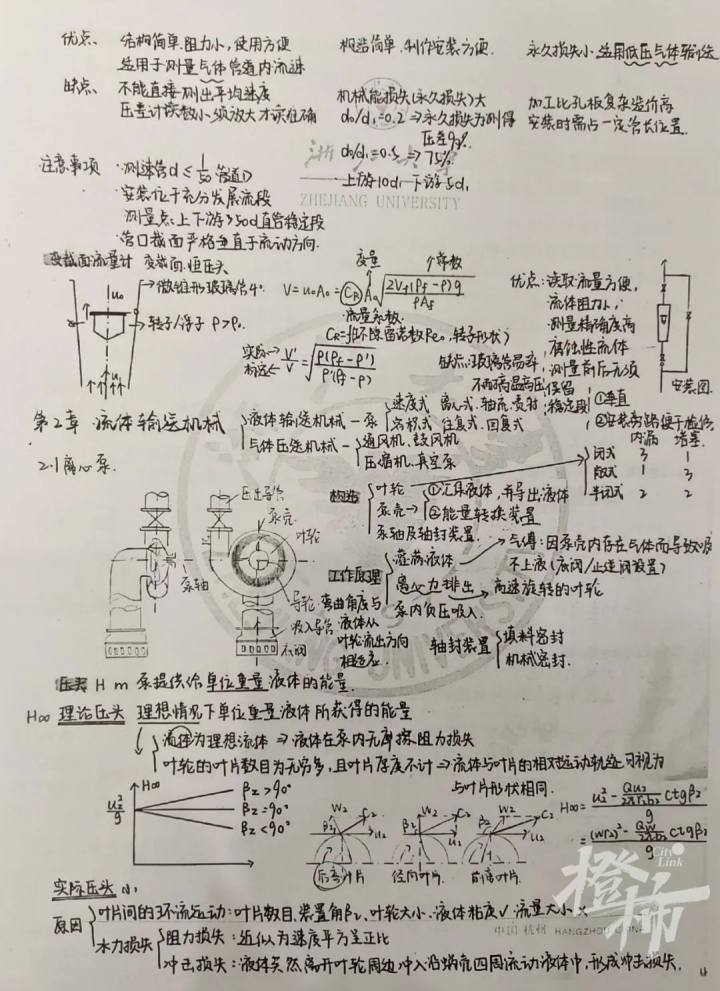 优点、 结构简单.阻力小,使用方便 构造简单.制作安装方便. 永久损失小.适用低压气体输送
适用于测量气体管道内流速
缺点、 不能直接测出平均速度 机械能损失(永久损失)大 加工比孔板复杂造价高
压差计读数小须放大才读准确 d₀/d₁=0.2⇒永久损失为测得 安装时需占一定管长位置.
压差90%.
d₀/d₁=0.5⇒75%.
注意事项 ·测速管d≤1/50管道D
上游10d₁ 下游5d₁
·安装位于充分发展流段
ZHEJIANG UNIVERSITY
测量点:上下游>50d直管稳定段
·管口截面严格垂直于流动方向.
变截面流量计 变截面.恒压头 变量 常数
微锥形玻璃管4°. V=u₀A₀=C_R A₀√(2V_f(ρ_f-ρ)g/ρA_f)
优点:读取流量方便,
流体阻力小,
测量精确度高
腐蚀性流体
测量前后无须
保留稳定段
转子/浮子 ρ>ρ₀. 流量系数.
C_R=f(不除雷诺数Re₀,转子形状)
实际→ V'/V=√(ρ(ρ_f-ρ')/ρ'(ρ_f-ρ))
标定←
缺点:玻璃管易碎,
不耐高温高压
安装图.
①垂直
②安装旁路便于检修
第2章 流体输送机械 液体输送机械-泵 速度式 离心式.轴流.喷射
容积式 往复式.回复式
气体压送机械-通风机、鼓风机
压缩机、真空泵
内漏 堵塞.
闭式 3 1
敞式 1 3
半闭式 2 2
2.1离心泵.
压出导管
泵壳
叶轮
泵轴
导轮.弯曲角度与
液体从
叶轮流出方向
相适应.
吸入导管
底阀
构造 叶轮
泵壳→ ①汇集液体,并导出液体
②能量转换装置
泵轴及轴封装置.
工作原理 灌满液体 →气缚:因泵壳内存在气体而导致吸
不上液(底阀/止逆阀设置)
离心力排出 →高速旋转的叶轮
泵内负压吸入.
轴封装置 填料密封
机械密封.
压头 H m 泵提供给单位重量液体的能量.
H∞ 理论压头 理想情况下单位重量液体所获得的能量
流体为理想流体⇒液体在泵内无摩擦阻力损失
叶轮的叶片数目为无穷多,且叶片厚度不计⇒流体与叶片的相对运动轨迹可视为
与叶片形状相同.
H∞
u₂²/g
β₂>90°
β₂=90°
β₂<90°
w₂ c₂ β₂ u₂
w₂ c₂ β₂ u₂
w₂ c₂ β₂ u₂
后弯叶片 径向叶片. 前弯叶片.
H∞=(u₂²-(Qu₂/2πr₂b₂)ctgβ₂)/g
=((wr₂)²-(Qw/2πb₂)ctgβ₂)/g
实际压头 小
原因 叶片间的环流运动:叶片数目.装置角β₂、叶轮大小.液体粘度√ 流量大小×
水力损失 阻力损失:近似为速度平方呈正比
中国·杭州 HANGZHOU CHINA
冲击损失:液体突然离开叶轮周边冲入沿蜗壳四周流动液体中,形成冲击损失.
City Link
橙柿
4